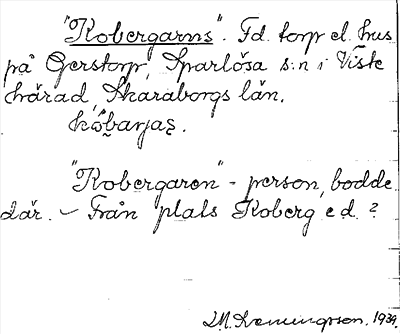 "Kobergarns". Fd. torp el. hus
på Gerstorp, Sparlösa s:n i Viste
härad, Skaraborgs län.
"Kobergaren" - person, bodde
där. - Från plats Koberg e.d. ?
1939.